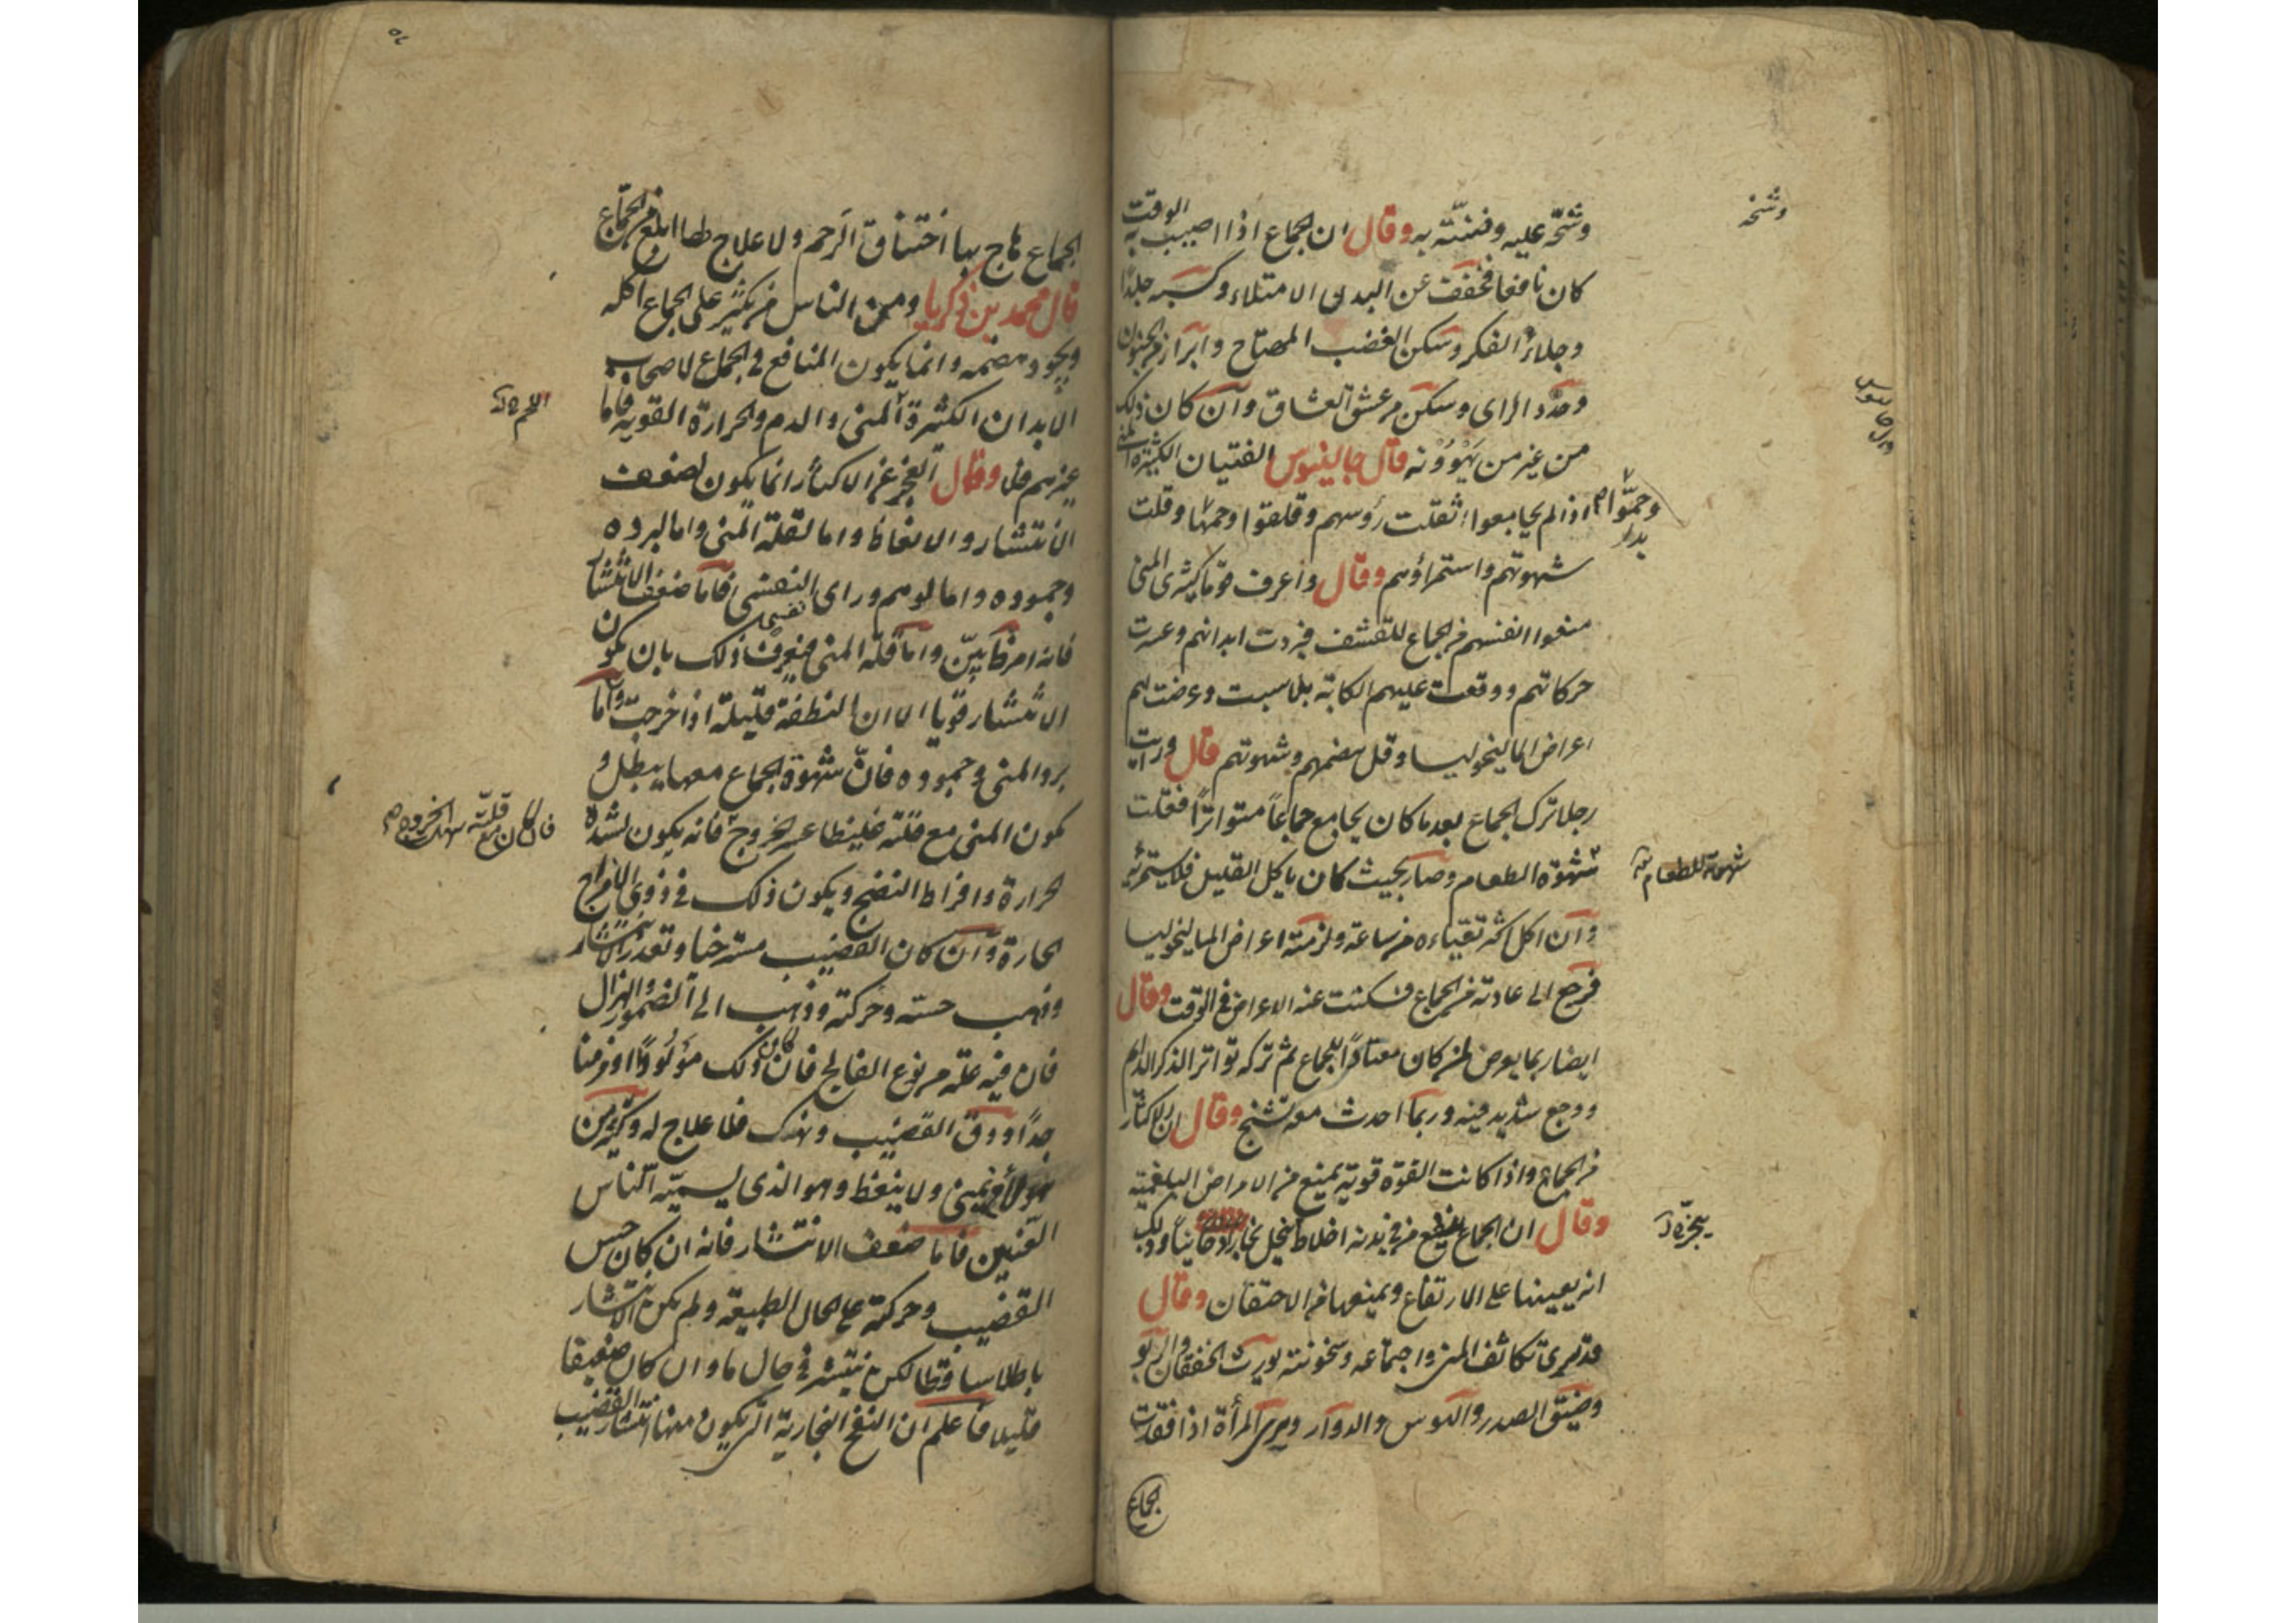 وشحه عليه وفتنته به وقال ان الجماع اذا اصيب به الوقت
وشحه
كان نافعا فخفف عن البدن الامتلاء وكسبه جلدا
وجلاء الفكر وسكن الغضب المهتاح وابرا من الجنون
وحدد الراى وسكن من عشق العشاق وان كان ذلك
من غير من يهوونه قال جالينوس الفتيان الكثيرة المنى
اذا لم يجامعوا ثقلت رؤسهم وقلقوا وحموا وقلت
وحموا
شهوتهم واستمراؤهم وقال واعرف قوما كثيرى المنى
منعوا انفسهم من الجماع للتقشف فبردت ابدانهم وعسرت
حركاتهم ووقعت عليهم الكابة بلا سبب وعرضت لهم
اعراض الماليخوليا وقل هضمهم وشهوتهم قال ورايت
رجلا ترك الجماع بعد ما كان يجامع جماعا متواترا ففقلت
شهوة الطعام وصار بحيث كان ياكل القليل فلا يستمرئه
شهوته للطعام
وان اكل اكثر تقياءه من ساعته ولزمته اعراض الماليخوليا
فرجع الى عادته من الجماع فسكنت عنه الاعراض فى الوقت وقال
ايضا ربما يعرض لمن كان معتادا للجماع ثم تركه تواتر الذكر الدايم
ووجع شديد فيه وربما احدث معه تشنج وقال ان الاكثار
من الجماع واذا كانت القوة قوية يمنع من الامراض البلغمية
وقال ان الجماع ينفع من فى بدنه اخلاط تنحل بخارا دخانيا وذلك
انه يعينها على الارتفاع ويمنعها من الاحتقان وقال
قد نرى تكاثف المنى واجتماعه وسخونته يورث الخفقان والربو
وضيق الصدر والكوس والدوار ونرى المرأة اذا فقدت
الجماع
الجماع هاج بها اختناق الرحم ولا علاج لها ابلغ من الجماع
قال محمد بن زكريا ومن الناس من يكثر على الجماع اكله
ويجود هضمه وانما يكون المنافع فى الجماع لاصحاب
الابدان الكثيرة المنى والدم والحرارة القوية فاما
غيرهم فلا وقال العجز عن الاكثار انما يكون لضعف
الانتشار والانعاظ واما لقلة المنى واما لبرده
وجموده واما لوهم وراى النفسى فاما ضعف الانتشار
فانه امر ظا بين واما قلة المنى فيعرف ذلك بان يكون
الانتشار قويا الا ان النطفة قليلة اذا خرجت واما
برد المنى وجموده فان شهوة الجماع معها يبطل و
يكون المنى مع قلته غليظا عسر الخروج فانه يكون لشدة
فان كان مع قلته سهل الخروج
الحرارة وافراط النضج ويكون ذلك فى ذوى الامزاج
الحارة وان كان القضيب مسترخيا وتعذر الانتشار
وذهب حسه وحركته وذهب الى الضمور والهزال
فان فيه علة من نوع الفالج فان كان ذلك مولودا او مزمنا
جدا ودق القضيب ونهك فلا علاج له وكثير من
هولاء يمنى ولا ينعظ وهو الذى يسميه الناس
العنين فاما ضعف الانتشار فانه ان كان حس
القضيب وحركته على الحال الطبيعة ولم يكن الانتشار
باطلا ساقطا لكن ينتشر فى حال ما وان كان ضعيفا
قليلا فاعلم ان النفخ البخارية التى يكون منها انتشار القضيب